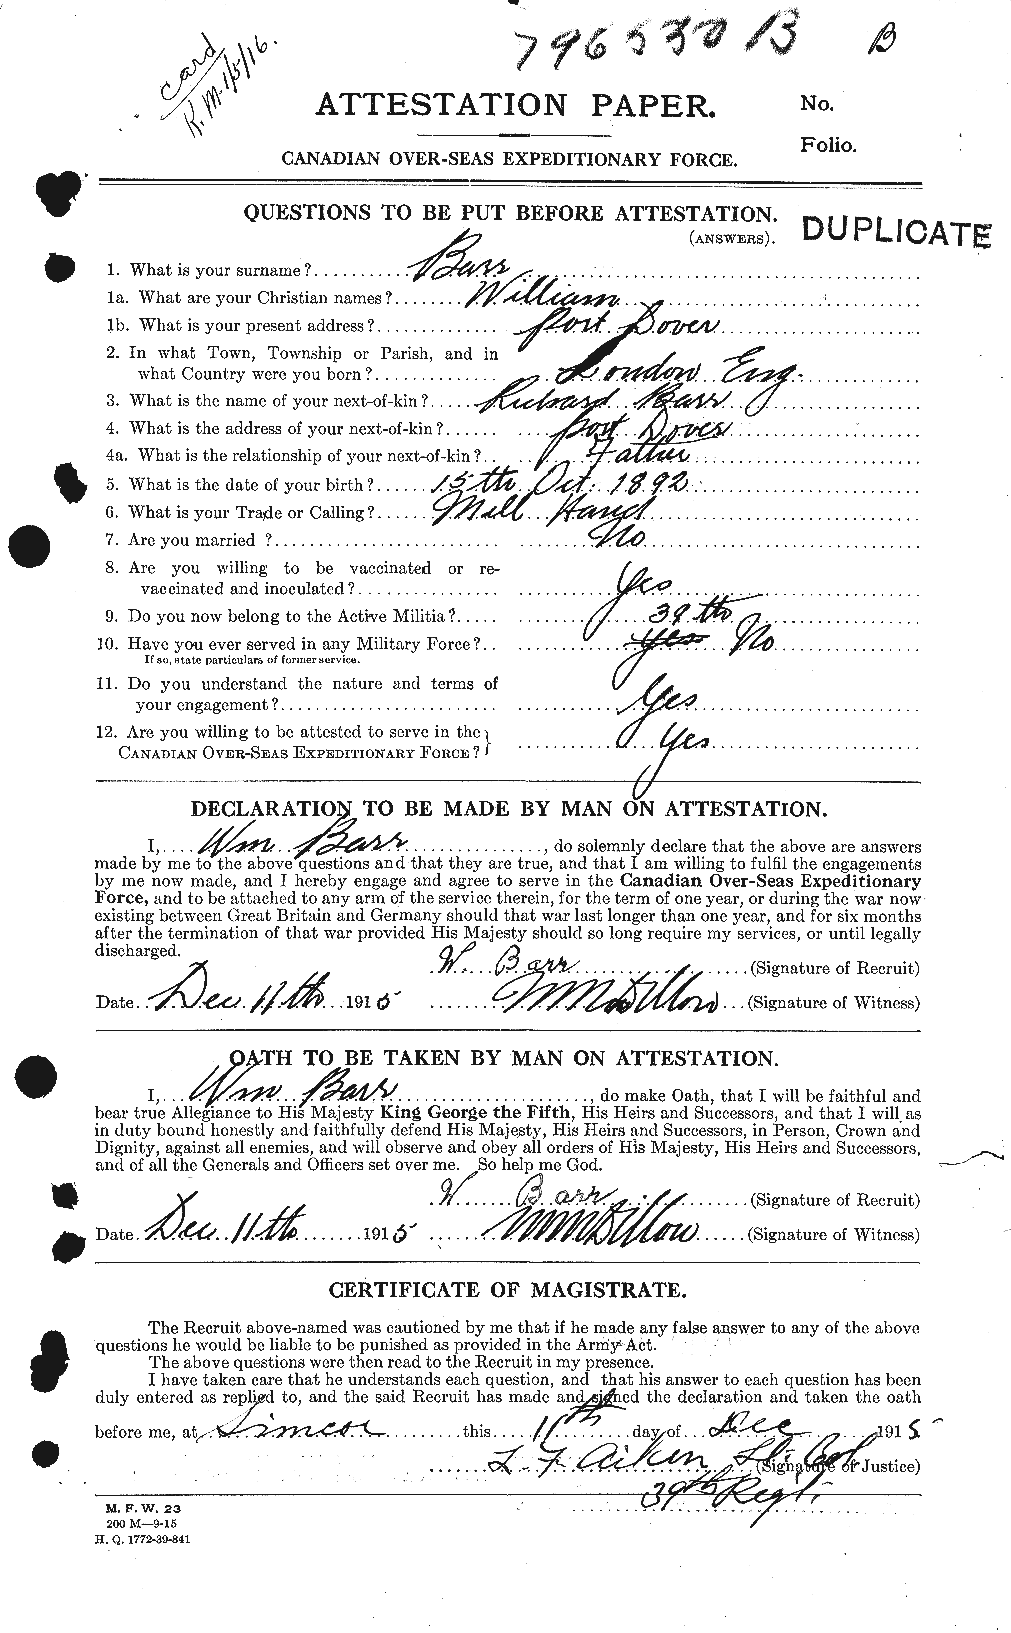 796530 B B
card
R.M. 1/5/16.
ATTESTATION PAPER.
No.
Folio.
CANADIAN OVER-SEAS EXPEDITIONARY FORCE.
QUESTIONS TO BE PUT BEFORE ATTESTATION.
(ANSWERS).
DUPLICATE
1. What is your surname?.......... Barr
1a. What are your Christian names?........ William
1b. What is your present address?............. Port Dover
2. In what Town, Township or Parish, and in
what Country were you born?.............. London Eng.
3. What is the name of your next-of-kin?..... Richard Barr
4. What is the address of your next-of-kin?...... Port Dover
4a. What is the relationship of your next-of-kin?.. Father
5. What is the date of your birth?...... 15th Oct. 1892
6. What is your Trade or Calling?...... Mill Hand
7. Are you married ?.......................... No
8. Are you willing to be vaccinated or re-
vaccinated and inoculated?................ Yes
9. Do you now belong to the Active Militia?..... 39th
10. Have you ever served in any Military Force?.. Yes No
If so, state particulars of former service.
11. Do you understand the nature and terms of
your engagement?......................... Yes
12. Are you willing to be attested to serve in the
CANADIAN OVER-SEAS EXPEDITIONARY FORCE? Yes
DECLARATION TO BE MADE BY MAN ON ATTESTATION.
I,.... Wm Barr ..............., do solemnly declare that the above are answers
made by me to the above questions and that they are true, and that I am willing to fulfil the engagements
by me now made, and I hereby engage and agree to serve in the Canadian Over-Seas Expeditionary
Force, and to be attached to any arm of the service therein, for the term of one year, or during the war now
existing between Great Britain and Germany should that war last longer than one year, and for six months
after the termination of that war provided His Majesty should so long require my services, or until legally
discharged.
W. Barr (Signature of Recruit)
Date. Dec 11th 1915 (Signature of Witness)
OATH TO BE TAKEN BY MAN ON ATTESTATION.
I,... Wm Barr ....................., do make Oath, that I will be faithful and
bear true Allegiance to His Majesty King George the Fifth, His Heirs and Successors, and that I will as
in duty bound honestly and faithfully defend His Majesty, His Heirs and Successors, in Person, Crown and
Dignity, against all enemies, and will observe and obey all orders of His Majesty, His Heirs and Successors,
and of all the Generals and Officers set over me. So help me God.
W Barr (Signature of Recruit)
Date. Dec 11th 1915 (Signature of Witness)
CERTIFICATE OF MAGISTRATE.
The Recruit above-named was cautioned by me that if he made any false answer to any of the above
questions he would be liable to be punished as provided in the Army Act.
The above questions were then read to the Recruit in my presence.
I have taken care that he understands each question, and that his answer to each question has been
duly entered as replied to, and the said Recruit has made and signed the declaration and taken the oath
before me, at Simcoe this 11th day of Dec 1915
L F Aiken Lt. Col (Signature of Justice)
39th Regt.
M. F. W. 23
200 M—9-15
H. Q. 1772-39-841